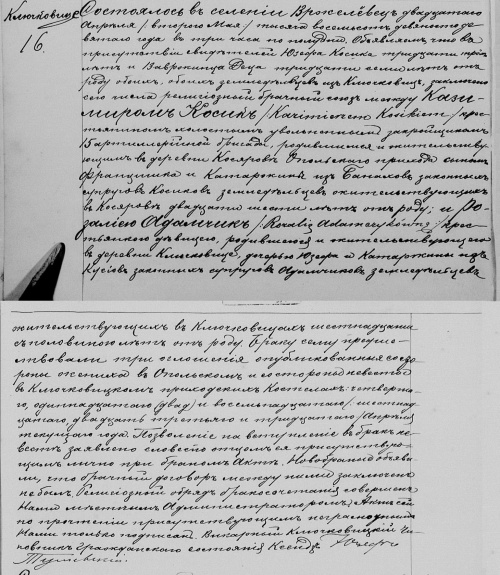 Ключковице
16.
Состоялось въ селеніи Вржелёвец двадцатаго
Апрѣля / втораго Мая / тысяча восемьсотъ девяносто де-
вятаго года въ три часа по полудни. Объявляемъ, что въ
присутствіи свидѣтелей Юзефа Косика тридцати
лѣтъ и Вавржинца Деца тридцати семи лѣтъ отъ
роду обоихъ, обоихъ земледѣльцевъ изъ Ключковицъ, заключенъ
сего числа религіозный брачный союзъ между Кази-
миромъ Косикъ / Kazimierzem Kosikiem / кре-
стьяниномъ холостымъ уволеннымъ закройщикомъ
15 артиллерійской бригады, родившимся и жительству-
ющимъ въ деревни Косяровъ Опольскаго прихода сыномъ
Францишка и Катаржины изъ Банаховъ законныхъ
супруговъ Косиковъ земледѣльцевъ жительствующихъ
въ Косяровѣ двадцати шести лѣтъ отъ роду; и Ро-
заліею Адамчикъ / Rozalią Adamczykówną / крес-
тьянкою дѣвицею, родившеюся и жительствующею
въ деревни Ключковице, дочерью Юзефа и Катаржины изъ
законныхъ супруговъ Адамчиковъ земледѣльцевъ
жительствующимъ въ Ключковицахъ шестнадцати
съ половиною лѣтъ отъ роду. Браку сему предше-
ствовали три оглашенія опубликованныя со сто-
роны жениха въ Опольскомъ и со стороны невѣсты
въ Ключковицкомъ приходскихъ Костелахъ: четверта-
го, одиннадцатаго (двад) и восемнадцатаго / шестнад-
цатаго, двадцать третьяго и тридцатаго / Апрѣля
текущаго года. Позволеніе на вступленіе въ бракъ не-
вѣстѣ заявлено словесно отцемъ ея присутствую-
щимъ лично при брачномъ Актѣ. Новобрачные объяви-
ли, что брачный договоръ между ними заключенъ
не былъ. Религіозный обрядъ бракосочетанія совершенъ
Нами мѣстнымъ Администраторомъ. Актъ сей
по прочтеніи присутствующимъ неграмотнымъ
Нами только подписанъ. Викарный Ключковицкій Чи-
новникъ Гражданскаго состоянія Ксендзъ Юзефъ